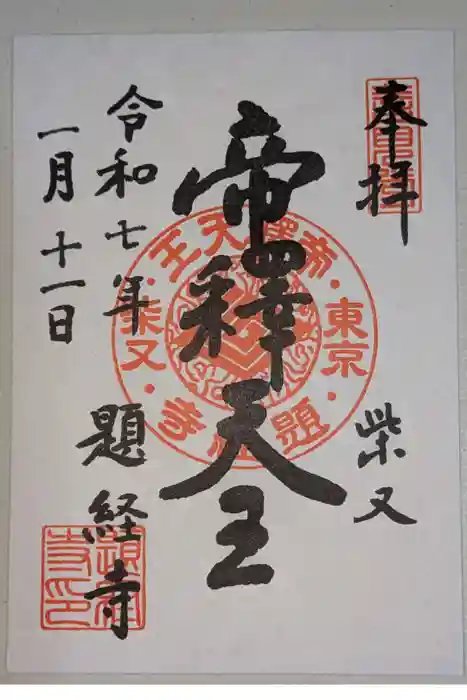 奉拝
柴又
帝釋天王
帝釋天王
東京
柴又
題経寺
令和七年
一月十一日
題経寺